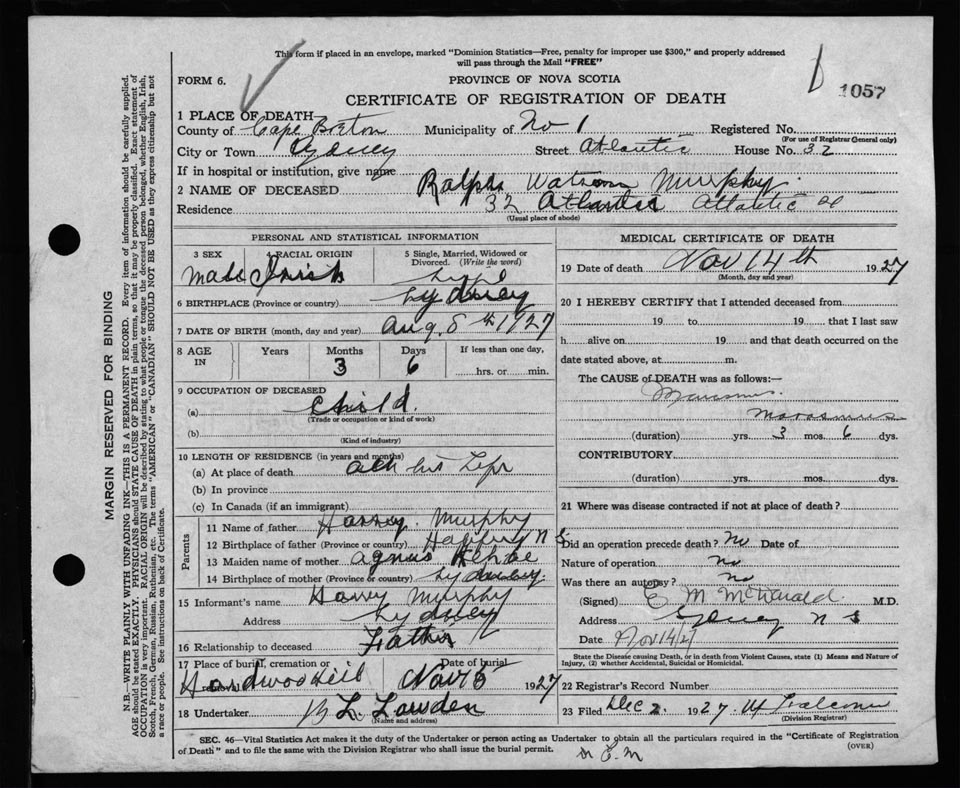 This form if placed in an envelope, marked "Dominion Statistics—Free, penalty for improper use $300," and properly addressed
will pass through the Mail "FREE"
FORM 6.
PROVINCE OF NOVA SCOTIA
1057
CERTIFICATE OF REGISTRATION OF DEATH
1 PLACE OF DEATH
County of Cape Breton Municipality of No 1 Registered No.
(For use of Registrar General only)
City or Town Sydney Street Atlantic House No. 32
If in hospital or institution, give name
2 NAME OF DECEASED Ralph Watson Murphy
Residence 32 Atlantic Atlantic St
(Usual place of abode)
PERSONAL AND STATISTICAL INFORMATION
3 SEX Male
4 RACIAL ORIGIN Irish
5 Single, Married, Widowed or Divorced. (Write the word)
6 BIRTHPLACE (Province or country) Sydney
7 DATE OF BIRTH (month, day and year) Aug 8th 1927
8 AGE IN Years Months 3 Days 6 If less than one day, hrs. or min.
9 OCCUPATION OF DECEASED
(a) Child
(Trade or occupation or kind of work)
(b)
(Kind of industry)
10 LENGTH OF RESIDENCE (in years and months)
(a) At place of death all his life
(b) In province
(c) In Canada (if an immigrant)
Parents
11 Name of father Harvey Murphy
12 Birthplace of father (Province or country) N S
13 Maiden name of mother Agnus
14 Birthplace of mother (Province or country) Sydney
15 Informant's name Harvy Murphy
Address Sydney
16 Relationship to deceased Father
17 Place of burial, cremation or removal Hardwood Hill
Date of burial Nov 15 1927
18 Undertaker L. Lowden
(Name and address)
MEDICAL CERTIFICATE OF DEATH
19 Date of death Nov 14th 1927
(Month, day and year)
20 I HEREBY CERTIFY that I attended deceased from
19 to 19 that I last saw
h alive on 19 and that death occurred on the
date stated above, at m.
The CAUSE of DEATH was as follows:—
Marasmus
Marasmus
(duration) yrs. 3 mos. 6 dys.
CONTRIBUTORY
(duration) yrs. mos. dys.
21 Where was disease contracted if not at place of death?
Did an operation precede death? No Date of
Nature of operation no
Was there an autopsy? no
(Signed) E M McDonald M.D.
Address Sydney N S
Date Nov 14/27
State the Disease causing Death, or in death from Violent Causes, state (1) Means and Nature of
Injury, (2) whether Accidental, Suicidal or Homicidal.
22 Registrar's Record Number
23 Filed Dec 2 1927 Falconer
(Division Registrar)
SEC. 46—Vital Statistics Act makes it the duty of the Undertaker or person acting as Undertaker to obtain all the particulars required in the "Certificate of Registration
of Death" and to file the same with the Division Registrar who shall issue the burial permit.
(OVER)
MARGIN RESERVED FOR BINDING
N.B.—WRITE PLAINLY WITH UNFADING INK—THIS IS A PERMANENT RECORD. Every item of information should be carefully supplied.
AGE should be stated EXACTLY. PHYSICIANS should STATE CAUSE OF DEATH in plain terms, so that it may be properly classified. Exact statement of
OCCUPATION is very important. RACIAL ORIGIN will be described by stating to what people or tongue the deceased person belonged, whether English, Irish,
Scotch, French, German, Russian, Ruthenian, etc. The terms "AMERICAN" or "CANADIAN" SHOULD NOT BE USED as they express citizenship but not
a race or people. See instructions on back of Certificate.